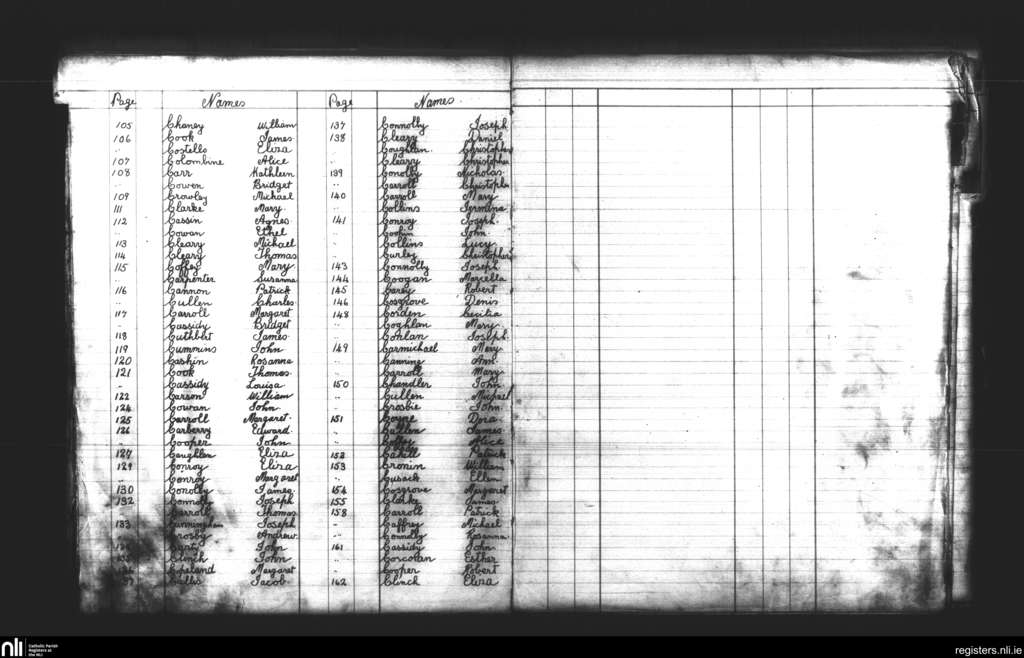 Page Names Page Names
105 Chaney William
106 Cook James
" Costello Eliza
107 Colombine Alice
108 Carr Kathleen
" Cowen Bridget
109 Crowley Michael
111 Clarke Mary
112 Cassin Agnes
" Cowan Ethel
113 Cleary Michael
114 Cleary Thomas
115 Coffey Mary
Carpenter Susanna
116 Cannon Patrick
" Cullen Charles
117 Carroll Margaret
" Cassidy Bridget
118 Cuthbert James
119 Cummins John
120 Caskin Rosanna
121 Cook Thomas
" Cassidy Louisa
122 Carson William
124 Cowan John
125 Carroll Margaret
126 Carberry Edward
" Cooper John
127 Coughlan Eliza
129 Conroy Eliza
" Conroy Margaret
130 Conolly James
132 Connolly Joseph
" Carroll Thomas
133 Cunningham Joseph
Crosby Andrew
John
Clinch John
Copeland Margaret
Jacob
137 Connolly Joseph
138 Cleary Daniel
" Coughlan Christopher
" Cleary Christopher
139 Conolly Nicholas
" Carroll Christopher
140 Carroll Mary
" Collins
141 Conroy Joseph
" John
" Collins Lucy
" Curley Christopher
143 Connolly Joseph
144 Coogan Marcella
145 Carey Robert
146 Cosgrove Denis
148 Corden Cecilia
" Coghlan Mary
" Conlan Joseph
149 Carmichael Mary
" Canning Ann
" Carroll Mary
150 Chandler John
" Cullen Michael
" Crosbie John
151 Coyne Dora
" Cullen James
" Coffey Alice
152 Cahill Patrick
153 Cronin William
" Cusack Ellen
154 Cosgrove Margaret
155 Clarke James
158 Carroll Patrick
" Caffrey Michael
" Connolly Rosanna
161 Cassidy John
" Corcoran Esther
" Cooper Robert
162 Clinch Eliza
nli Catholic Parish
Registers at
the NLI
registers.nli.ie